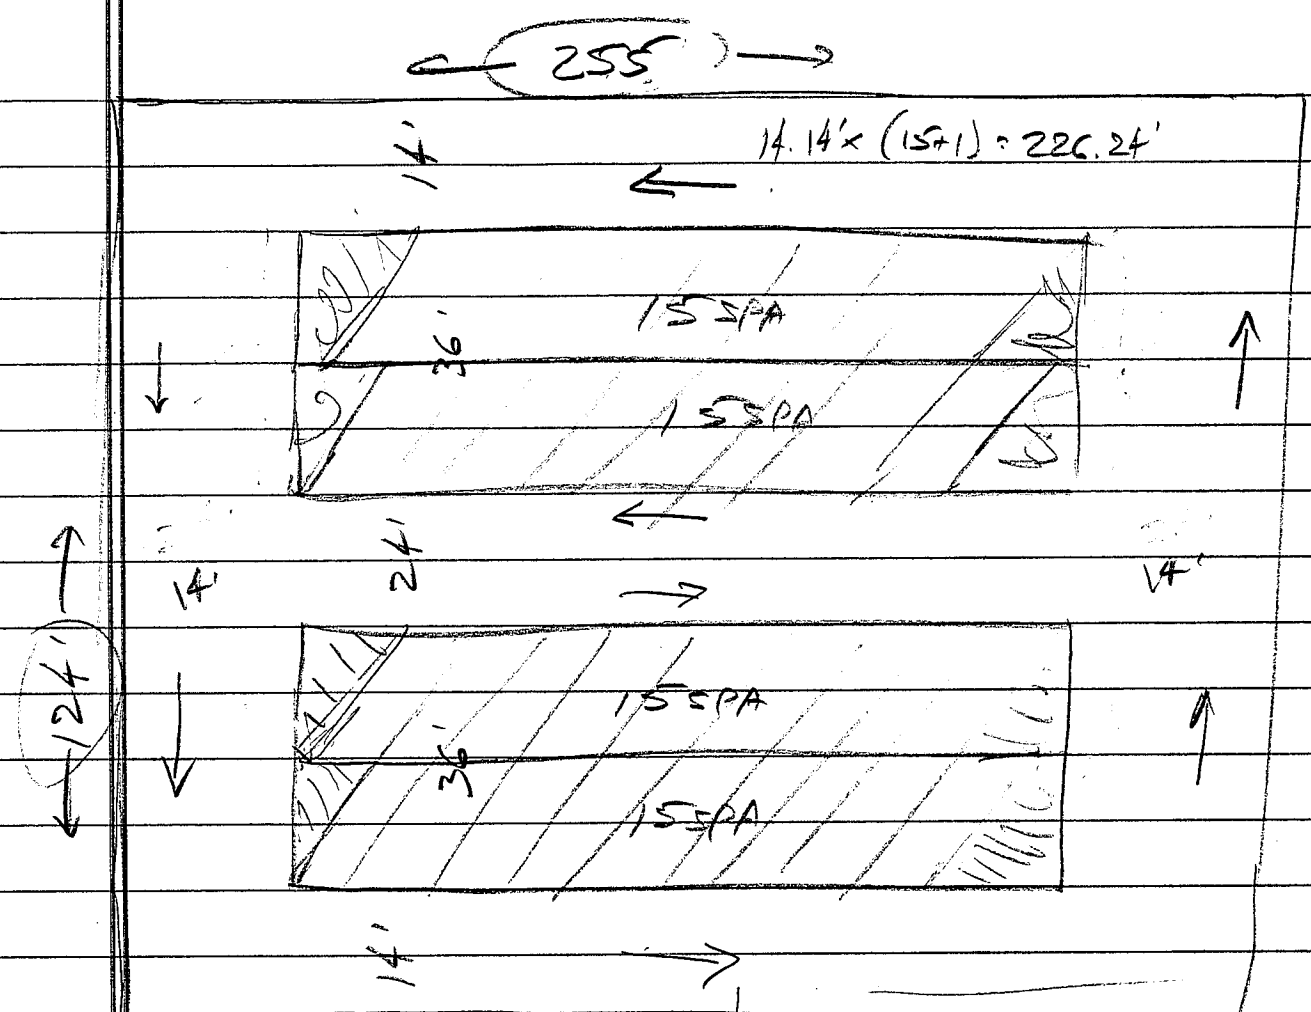 255
14'
14.14' x (15+1) = 226.24'
15 SPA
36'
15 SPA
24'
14'
14'
124'
15 SPA
36'
15 SPA
14'